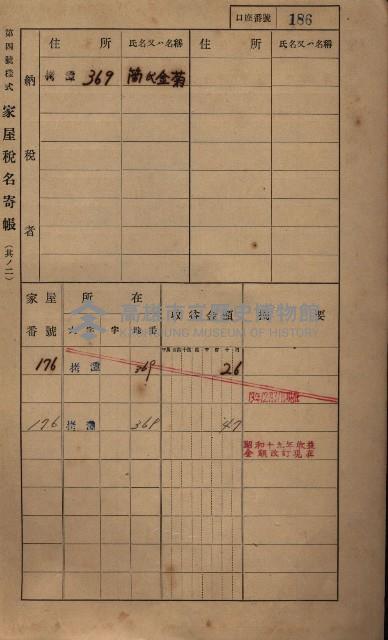 口座番號 186
第四號樣式 家屋稅名寄帳 (其ノ二)
納稅者
住所 氏名又ハ名稱 住所 氏名又ハ名稱
拷潭 369 簡氏金菊
家屋番號 所在 收益金額 摘要
大字 字 地番
高雄市立歷史博物館
KAOHSIUNG MUSEUM OF HISTORY
176 拷潭 369 26
176 拷潭 369 47
昭和十九年收益
金額改訂現在